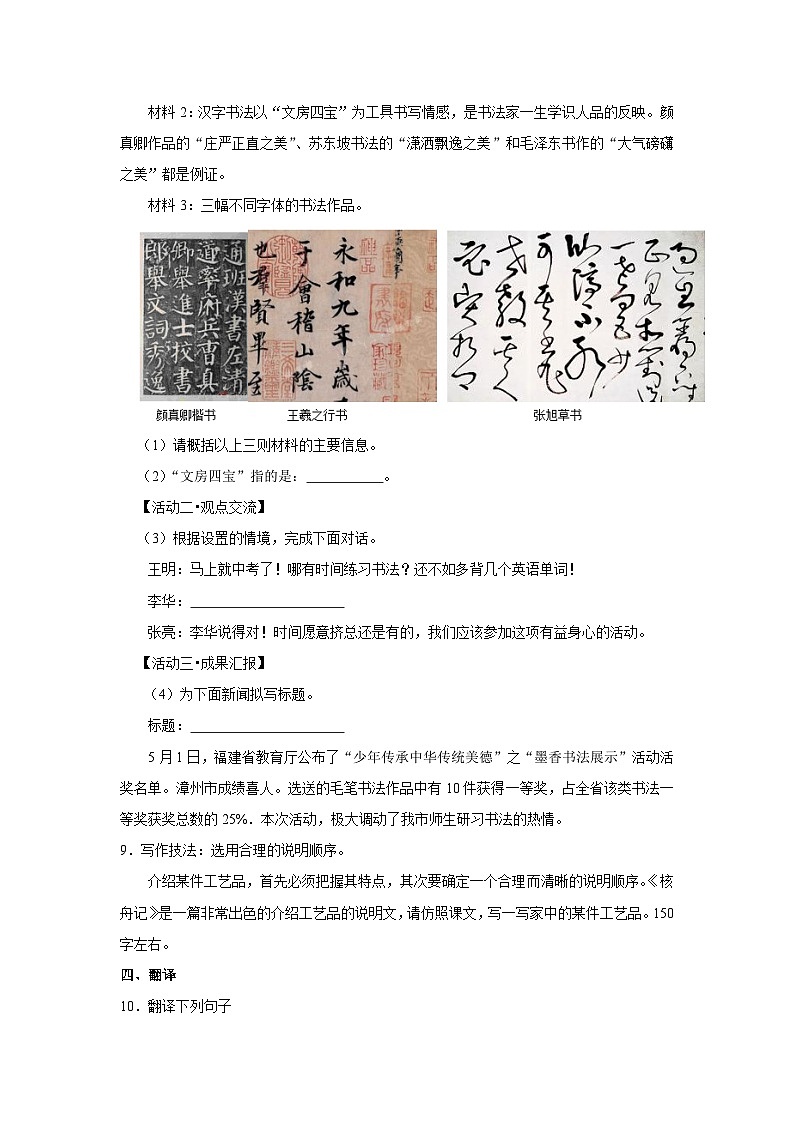 材料 2：汉字书法以“文房四宝”为工具书写情感，是书法家一生学识人品的反映。颜
真卿作品的“庄严正直之美”、苏东坡书法的“潇洒飘逸之美”和毛泽东书作的“大气磅礴
之美”都是例证。
材料 3：三幅不同字体的书法作品。
通班汉書左清
道寧府兵曹真
卿舉進士校書
郎舉文詞秀逸
永和九年歲
于會稽山陰
也羣賢畢至
颜真卿楷书
王羲之行书
张旭草书
（1）请概括以上三则材料的主要信息。
（2）“文房四宝”指的是：__________。
【活动二•观点交流】
（3）根据设置的情境，完成下面对话。
王明：马上就中考了！哪有时间练习书法？还不如多背几个英语单词！
李华：____________________
张亮：李华说得对！时间愿意挤总还是有的，我们应该参加这项有益身心的活动。
【活动三•成果汇报】
（4）为下面新闻拟写标题。
标题：____________________
5 月 1 日，福建省教育厅公布了“少年传承中华传统美德”之“墨香书法展示”活动活
奖名单。漳州市成绩喜人。选送的毛笔书法作品中有 10 件获得一等奖，占全省该类书法一
等奖获奖总数的 25%．本次活动，极大调动了我市师生研习书法的热情。
9．写作技法：选用合理的说明顺序。
介绍某件工艺品，首先必须把握其特点，其次要确定一个合理而清晰的说明顺序。《核
舟记》是一篇非常出色的介绍工艺品的说明文，请仿照课文，写一写家中的某件工艺品。150
字左右。
四、翻译
10．翻译下列句子